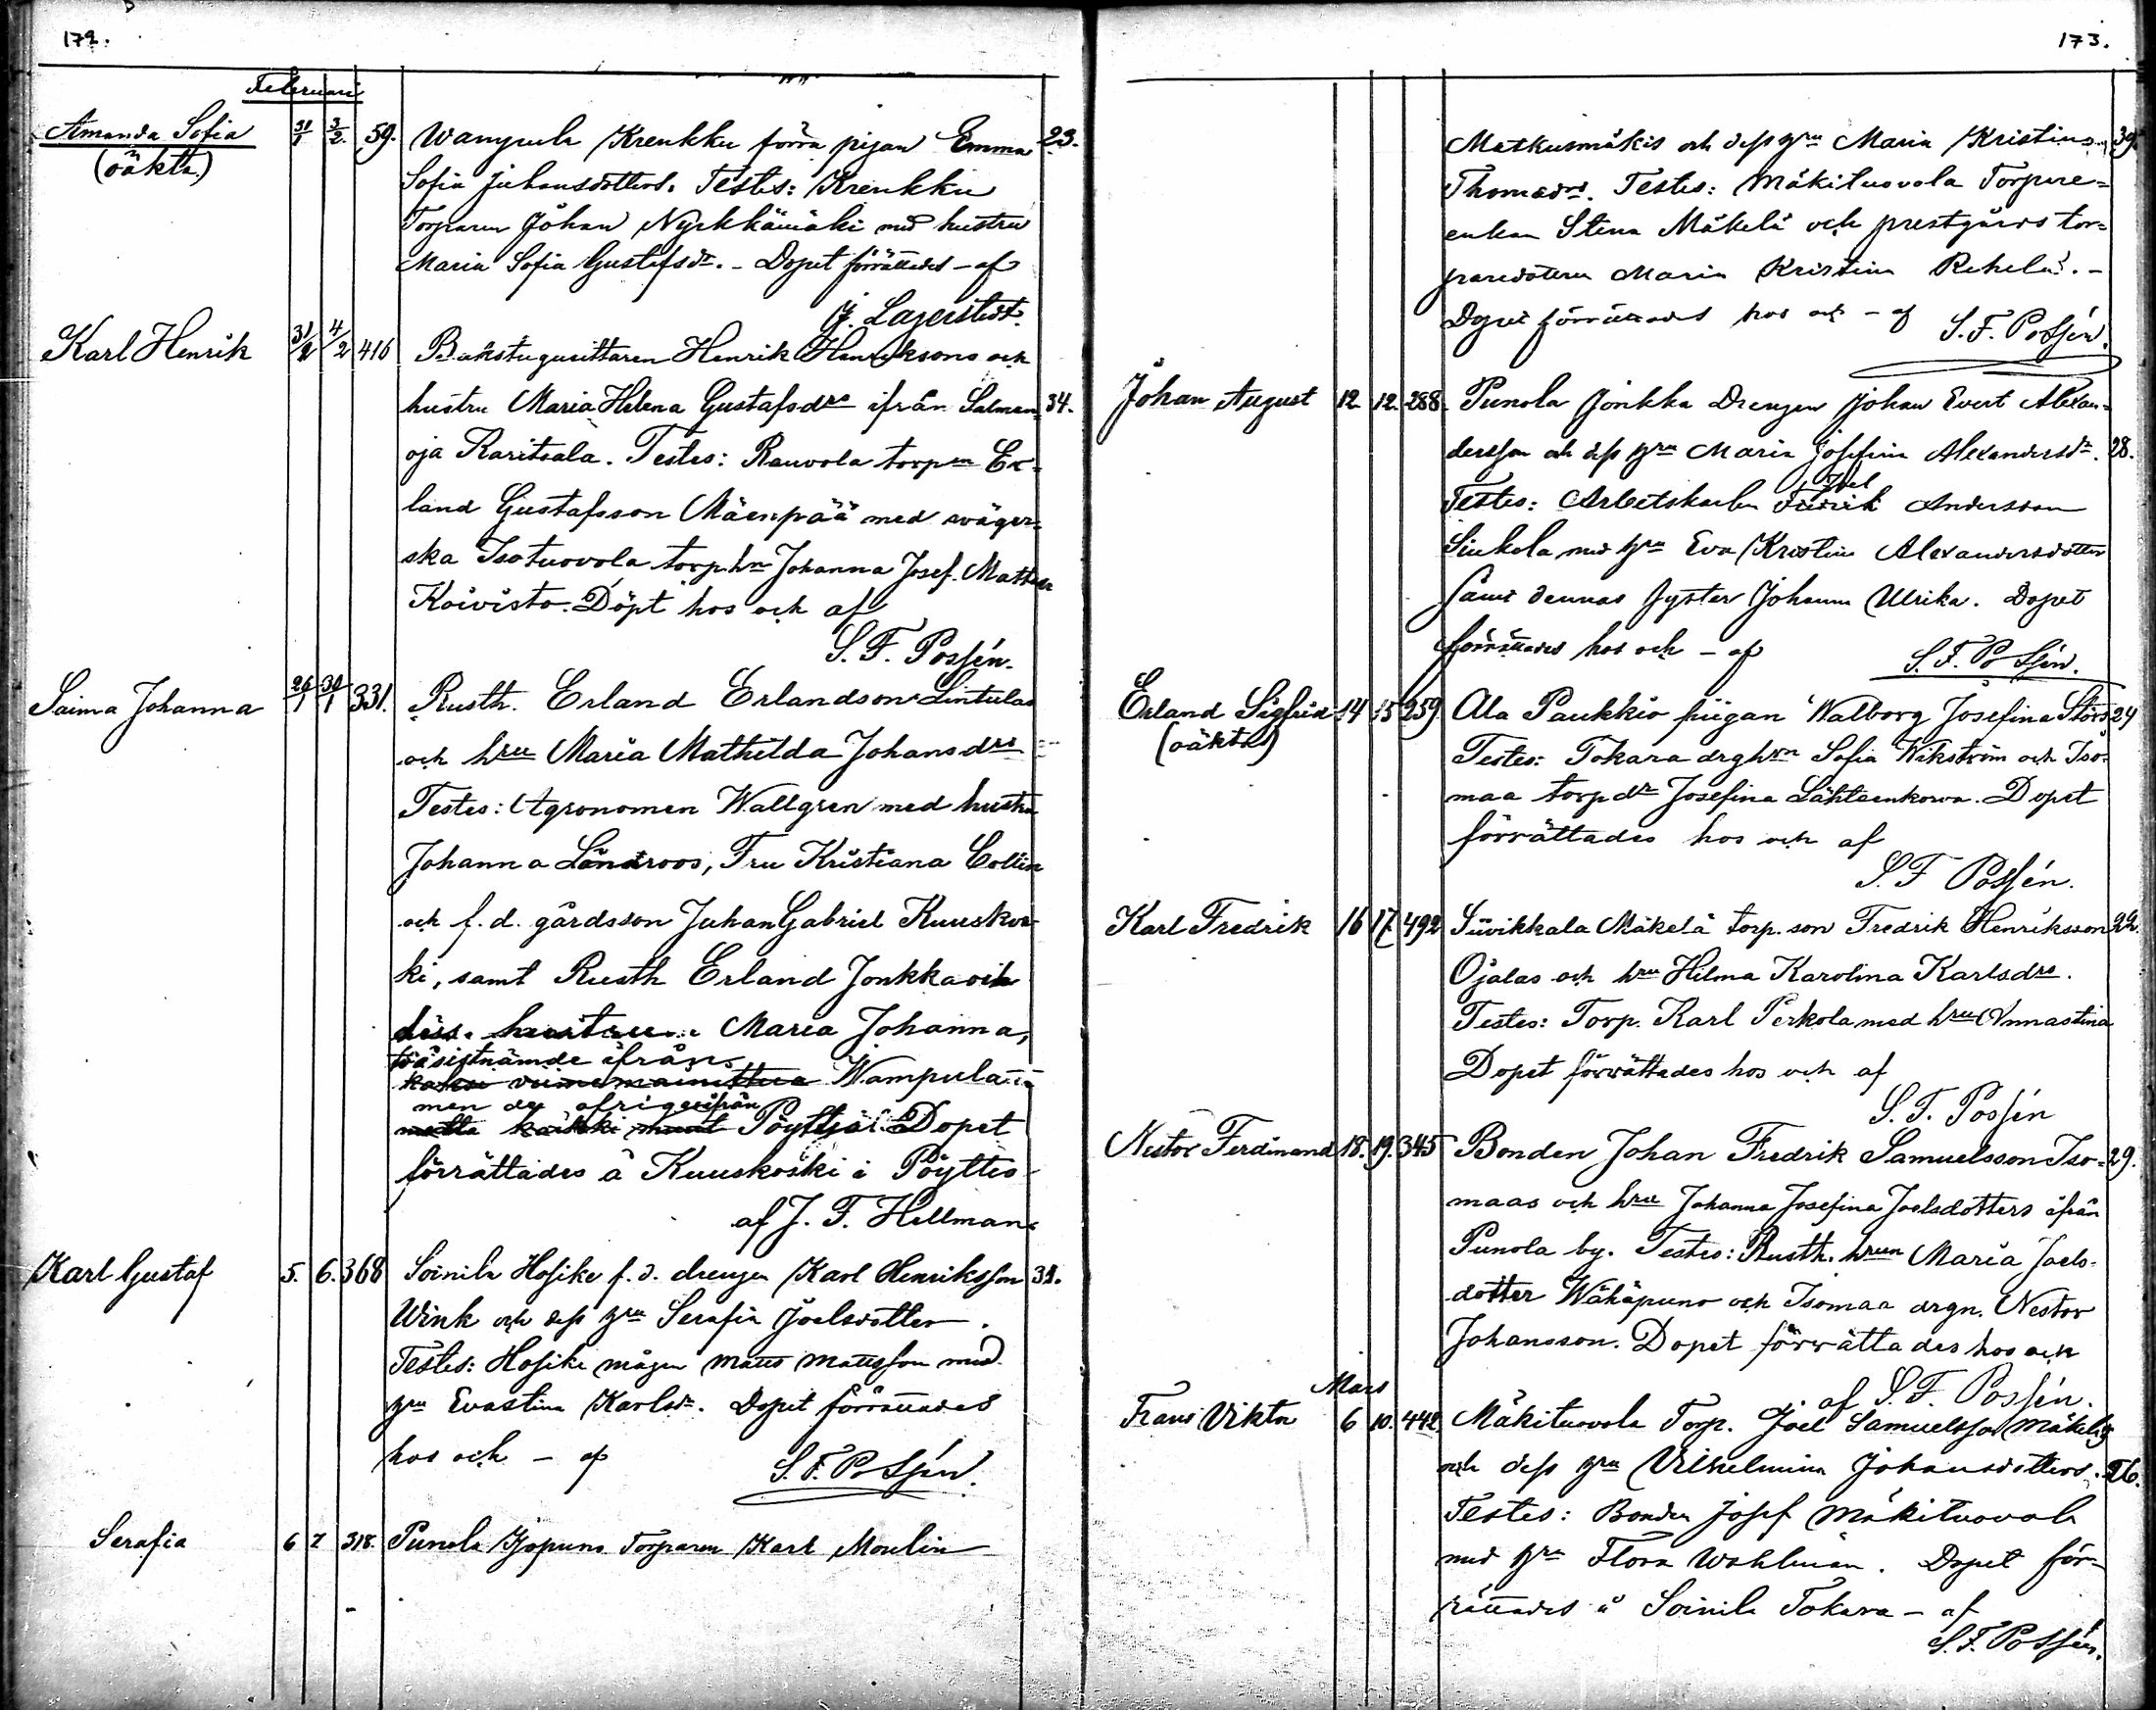 172.
Februari
Amanda Sofia 31/1 3/2. 59. Wampula Krenkku förra pigan Emma 23.
(oäkta) Sofia Juhansdotters. Testes: Krenkku
Torparen Johan Nyrkkämäki med hustru
Maria Sofia Gustafsdr. - Dopet förrättades - af
J. Lagerstedt.
Karl Henrik 31/2 4/2 416 Bakstugusittaren Henrik Henriksons och
hustru Maria Helena Gustafsdrs ifrån Salmen 34.
oja Karitsala. Testes: Rauvola torpen Er-
land Gustafsson Mäenpää med sväger-
ska Isotuovola torp.hn Johanna Josef. Mattsdr
Koivisto. Döpt hos och af
S. F. Possén.
Saima Johanna 26/1 30/1 331. Rusth. Erland Erlandson Lintulas
och hru Maria Mathilda Johansdrs
Testes: Agronomen Wallgren med hustru
Johanna Lindroos, Fru Kristiana Collin
och f.d. gårdsson Juhan Gabriel Kuuskos-
ki, samt Rusth Erland Jonkka och
dess hustru Maria Johanna,
tvåsistnämde ifrån
kaksi viimemainittua Wampula
men de öfrige ifrån
mutta kaikki muut Pöytis. Dopet
förrättades å Kuuskoski i Pöytis
af J. F. Hellman.
Karl Gustaf 5. 6. 368 Soinila Hosike f.d. drengen Karl Henriksson 31.
Wink och dess hru Serafia Joelsdotter.
Testes: Hosike mågen Matts Mattsson med
hru Evastina Karlsdr. Dopet förrättades
hos och - af S. F. Possén.
Serafia 6 7 318. Punola Yjopuno Torparen Karl Moulin
173.
Matkusmäkis och dess hru Maria Kristina 39.
Thomasdrs. Testes: Mäkituovola Torpare-
enkan Stina Mäkelä och prestgårds tor-
paredottern Maria Kristina Rehelä. -
Dopet förrättades hos och - af S. F. Possén.
Johan August 12 12. 288. Punola Jonkka Drengen Johan Evert Alexan-
dersson och dess hru Maria Josefina Alexandersdr. 28.
Joel
Testes: Arbetskarlen Fredrik Andersson
Sinkola med hru Eva Kristina Alexandersdotter
samt dennas syster Johanna Ulrika. Dopet
förrättades hos och - af S. F. Possén.
Erland Sigfrid 14 15 259 Ala Paukkio piigan Walborg Josefina Störs 24
(oäkta) Testes: Tokara drghrn Sofia Wikström och Iso-
maa torpdr Josefina Lähteenkorva. Dopet
förrättades hos och af
S. F. Possén.
Karl Fredrik 16 17. 492 Siivikkala Mäkelä torp. son Fredrik Henriksson 22.
Ojalas och hru Hilma Karolina Karlsdrs.
Testes: Torp. Karl Perkola med hru Annastina
Dopet förrättades hos och af
S. F. Possén
Nestor Ferdinand 18. 19. 345 Bonden Johan Fredrik Samuelsson Iso- 29.
maas och hru Johanna Josefina Joelsdotters ifrån
Punola by. Testes: Rusth. hrun Maria Joels-
dotter Wähäpuno och Isomaa drgn. Nestor
Johansson. Dopet förrättades hos och
af S. F. Possén.
Mars
Frans Viktor 6 10. 442 Mäkituovola Torp. Joel Samuelsson Mäkelä
och dess hru Vilhelmina Johansdotters. 26.
Testes: Bonden Josef Mäkituovola
med hru Flora Wahlman. Dopet för-
rättades å Soinila Tokara - af
S. F. Possén.